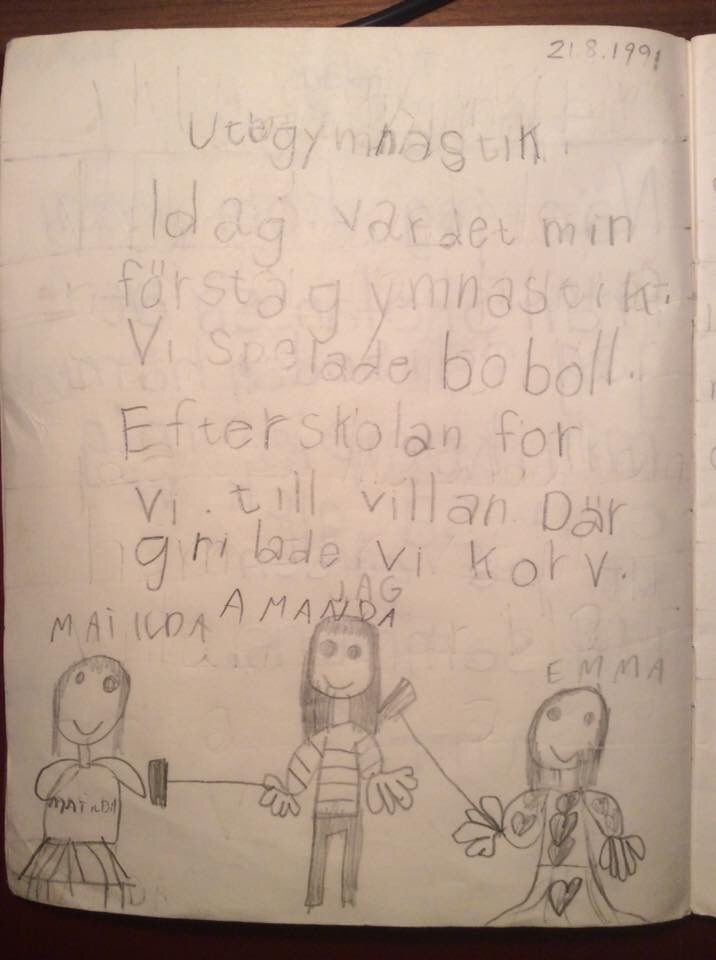 21.8.1991
Utegymnastik.
Idag var det min
första gymnastik.
Vi spelade boboll.
Efter skolan for
vi. till villan Där
grilade vi korv.
JAG
MAIILDA AMANDA
EMMA
MAiLDA
DA